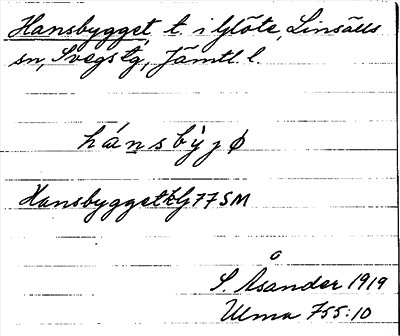 Hansbygget, t. i Glöte, Linsälls
sn, Svegs tg, Jämtl. l.
hánsby̆jø
Hansbygget 77 SM
S. Åsander 1919
Ulma 755:10